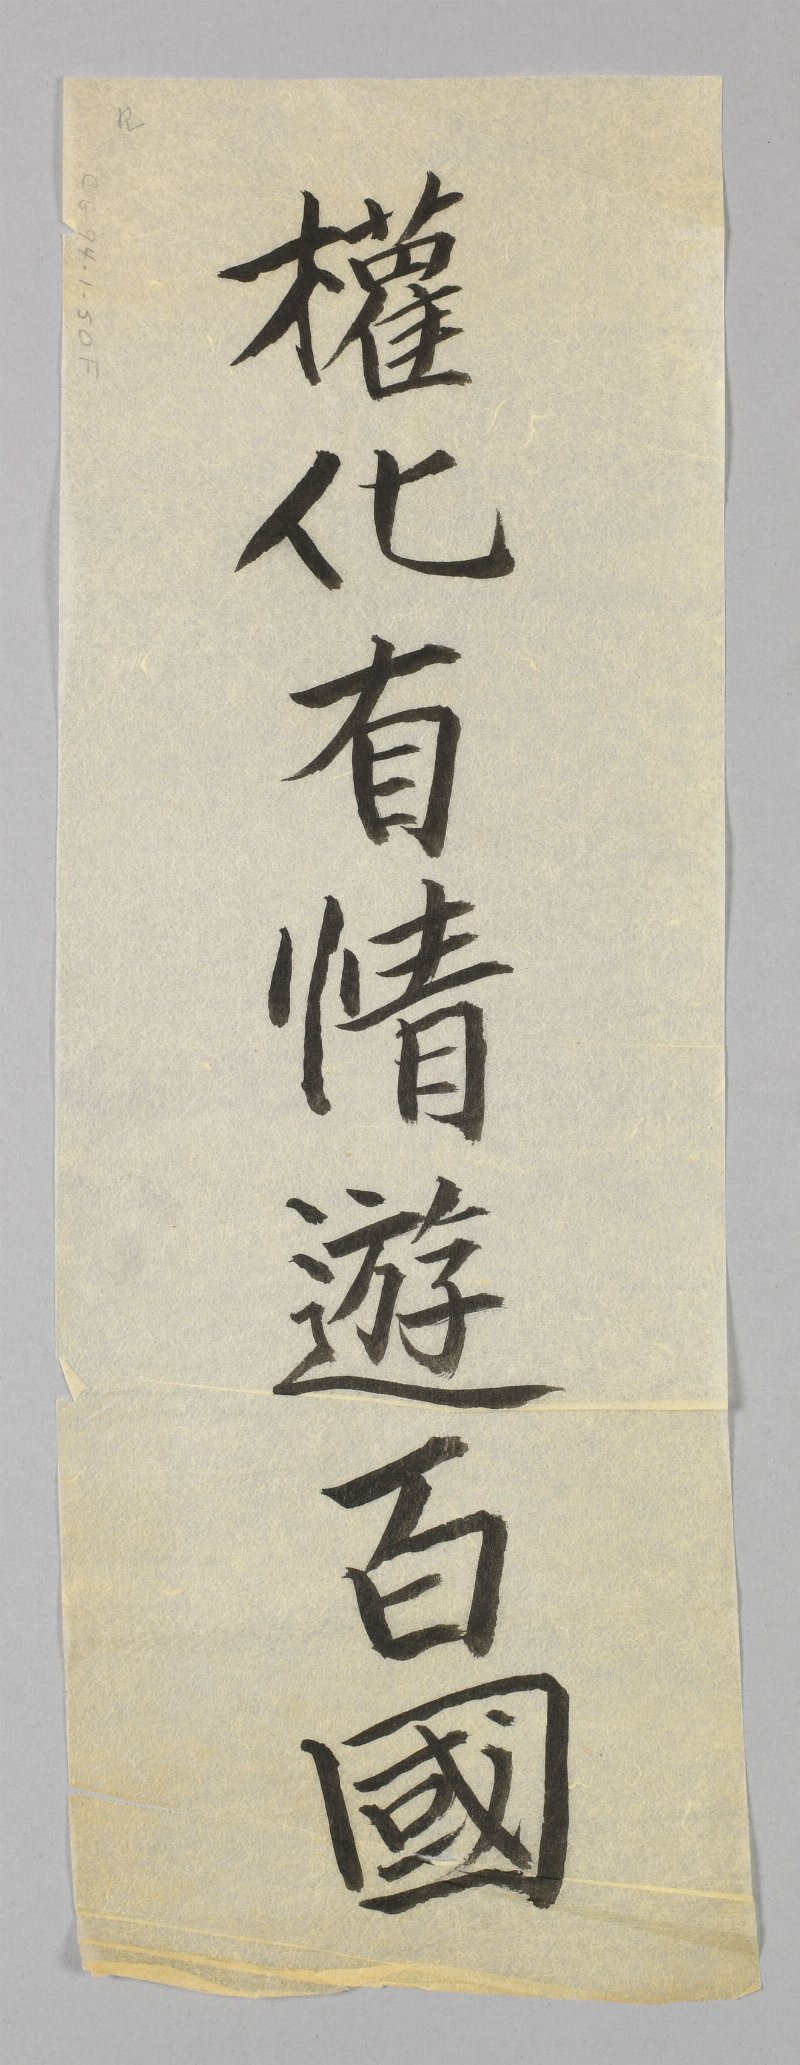 權化有情遊百國
R
CG-94.1-50F